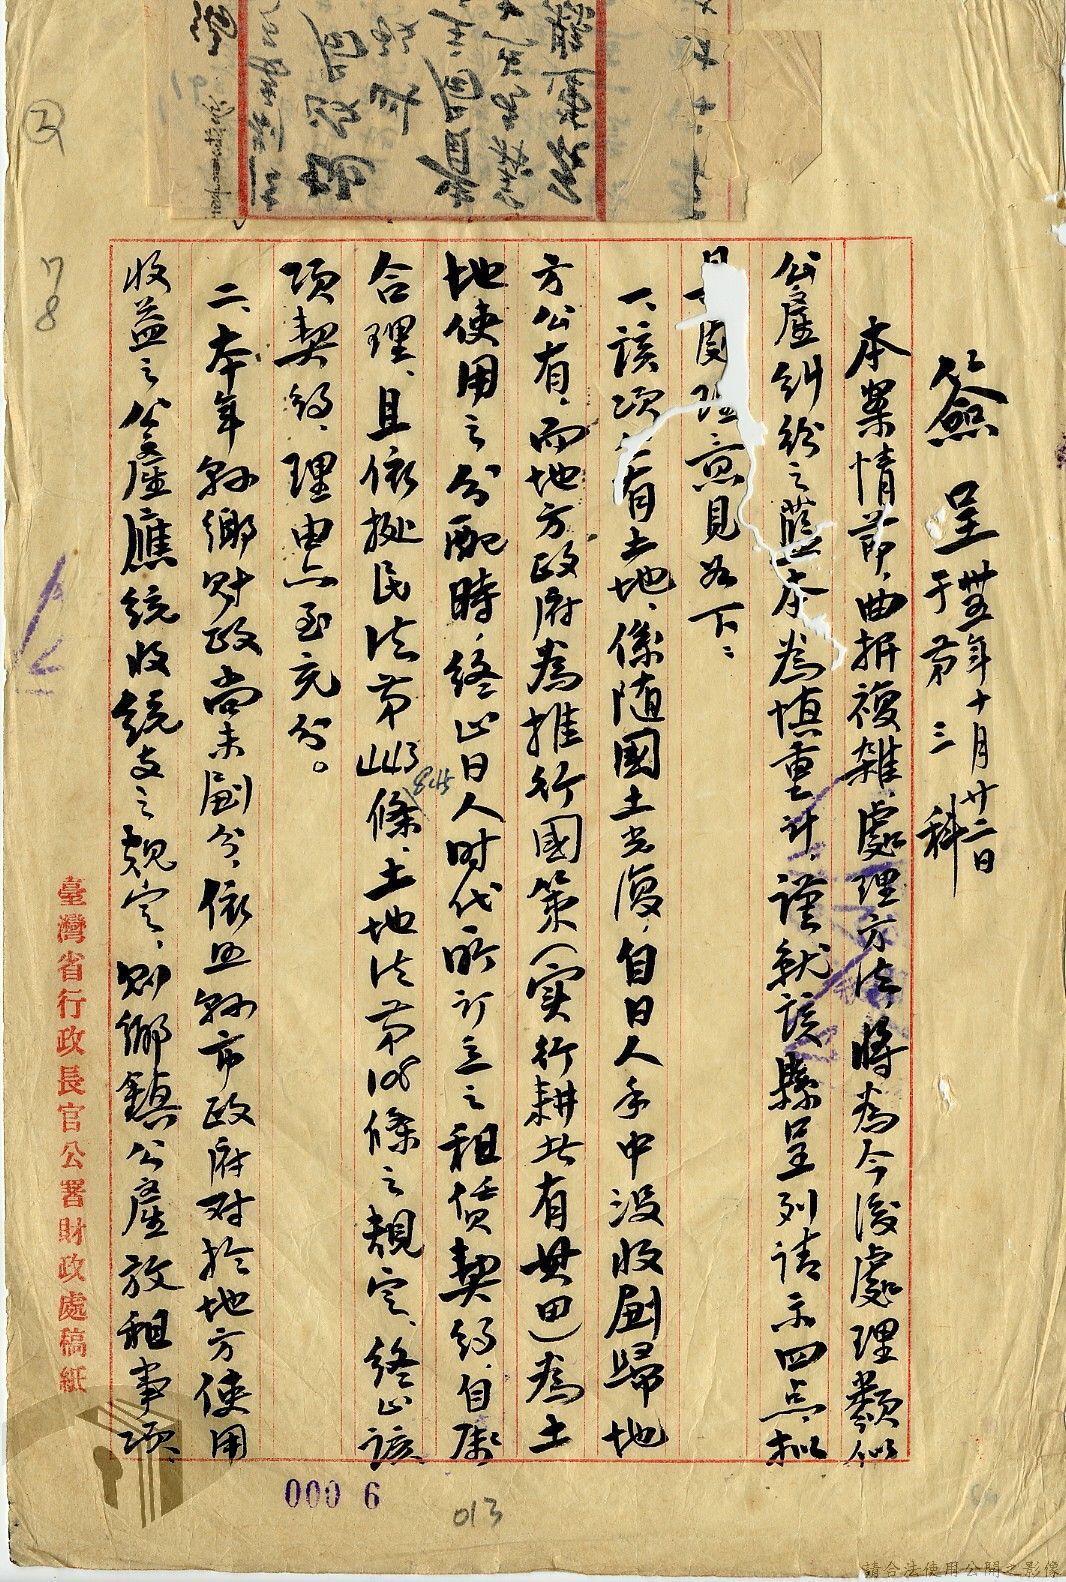 簽呈 卅五年十月廿二日
于第三科
本案情節曲折複雜、處理方法、將為今後處理類似
公產糾紛之藍本為慎重計、謹就該縣呈列請示四点、擬
具 意見如下：
一、該項 有土地、係隨國土光復、自日人手中沒收劃歸地
方公有、而地方政府為推行國策（實行耕者有其田）為土
地使用之分配時、終止日人时代所訂立之租賃契約、自屬
合理、且依據民法第443條、土地法第108條之規定、終止該
項契約、理由点至充分。
二、本年縣鄉財政尚未劃分、依照縣市政府对於地方使用
收益之公產應統收統支之規定、則鄉鎮公產放租事項、
臺灣省行政長官公署財政處稿紙
78
000 6
013
請合法使用公開之影像